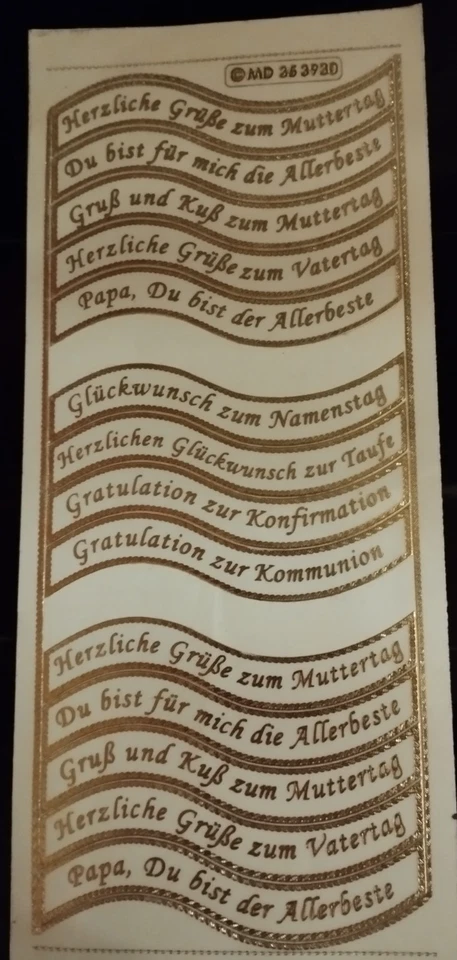 © MD 35 3930
Herzliche Grüße zum Muttertag
Du bist für mich die Allerbeste
Gruß und Kuß zum Muttertag
Herzliche Grüße zum Vatertag
Papa, Du bist der Allerbeste
Glückwunsch zum Namenstag
Herzlichen Glückwunsch zur Taufe
Gratulation zur Konfirmation
Gratulation zur Kommunion
Herzliche Grüße zum Muttertag
Du bist für mich die Allerbeste
Gruß und Kuß zum Muttertag
Herzliche Grüße zum Vatertag
Papa, Du bist der Allerbeste